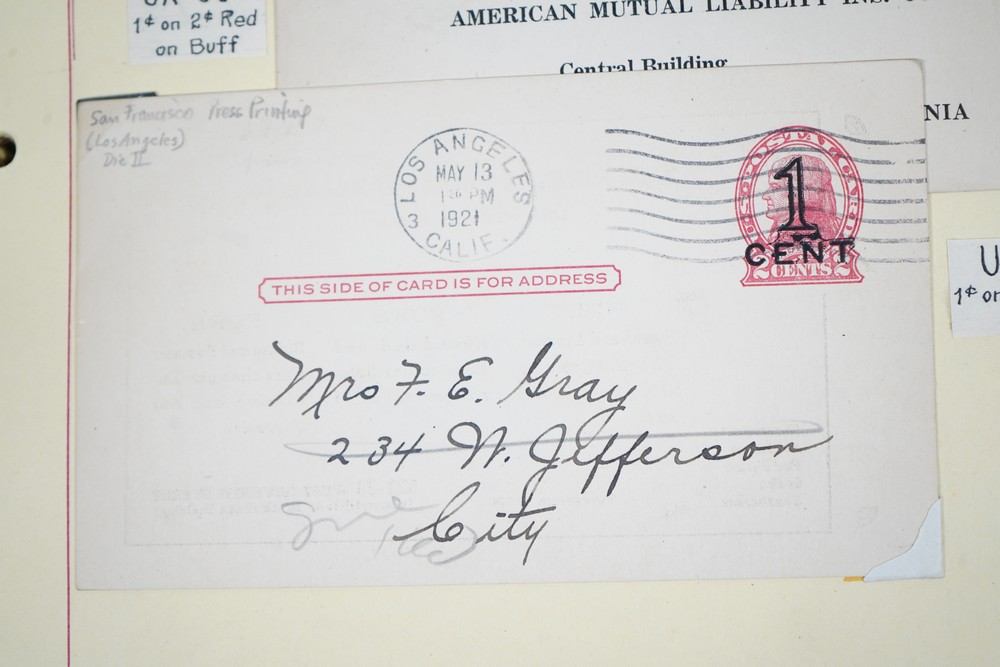 1¢ on 2¢ Red
on Buff
AMERICAN MUTUAL LIABILITY INS.
Central Building
NIA
San Francisco Press Printing
(Los Angeles)
Die II
LOS ANGELES
MAY 13
PM
3 1921
CALIF.
1
CENT
2 CENTS 2
THIS SIDE OF CARD IS FOR ADDRESS
U
1¢ on
Mrs F. E. Gray
234 N. Jefferson
City